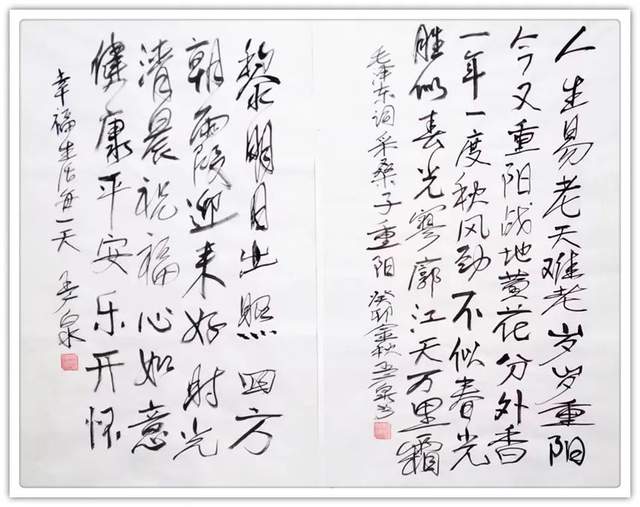 人生易老天难老岁岁重阳
今又重阳战地黄花分外香
一年一度秋风劲不似春光
胜似春光寥廓江天万里霜
毛泽东词采桑子重阳 癸卯金秋 泉书
黎明日出照四方
朝霞迎来好射光
清晨祝福心如意
健康平安乐开怀
幸福生活每一天 泉